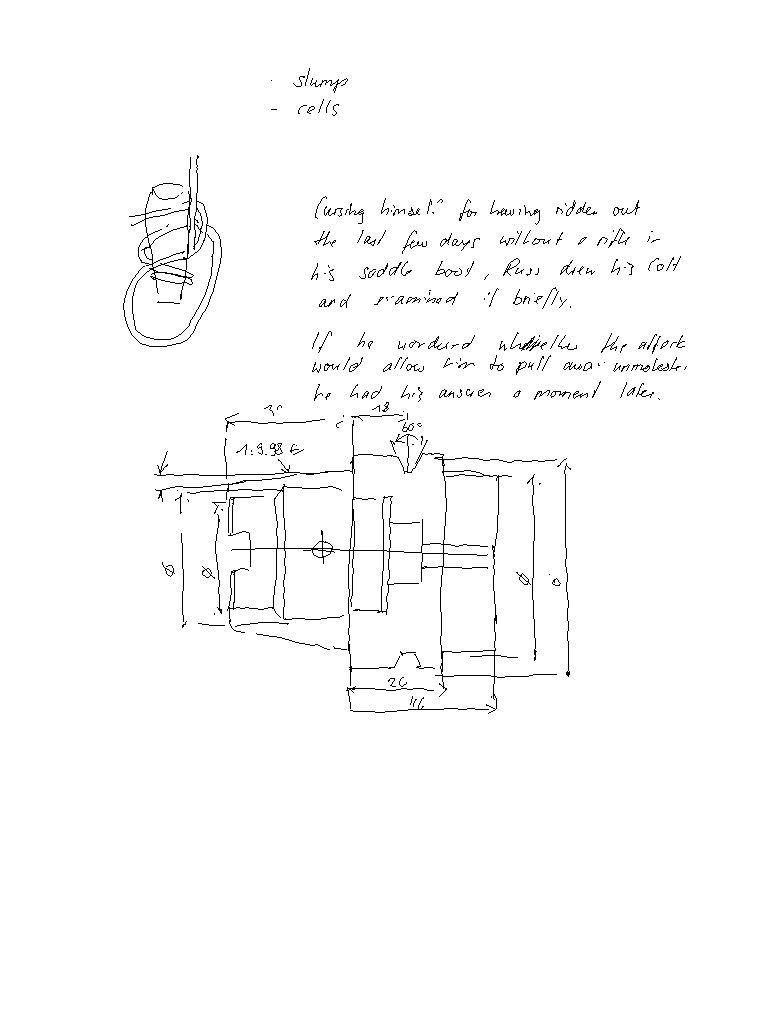 · slumps
- cells
Cursing himself for having ridden out
the last few days without a rifle in
his saddle boot, Russ drew his Colt
and examined it briefly.
If he wondered whether the attack
would allow him to pull away unmolested
he had his answer a moment later.
18
60°
1:9.98
Ø Ø Ø
26
46